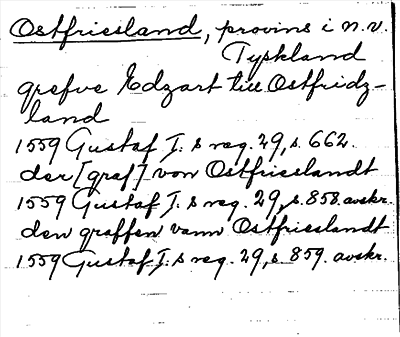 Ostfriesland, provins i n.v.
Tyskland
grefve Edzart till Ostfridz-
land
1559 Gustaf I:s reg. 29, s. 662.
der [graf] von Ostfriesslandt
1559 Gustaf I:s reg. 29, s. 858. avskr.
den graffen vann Ostfriesslandt
1559 Gustaf I:s reg. 29, s. 859. avskr.